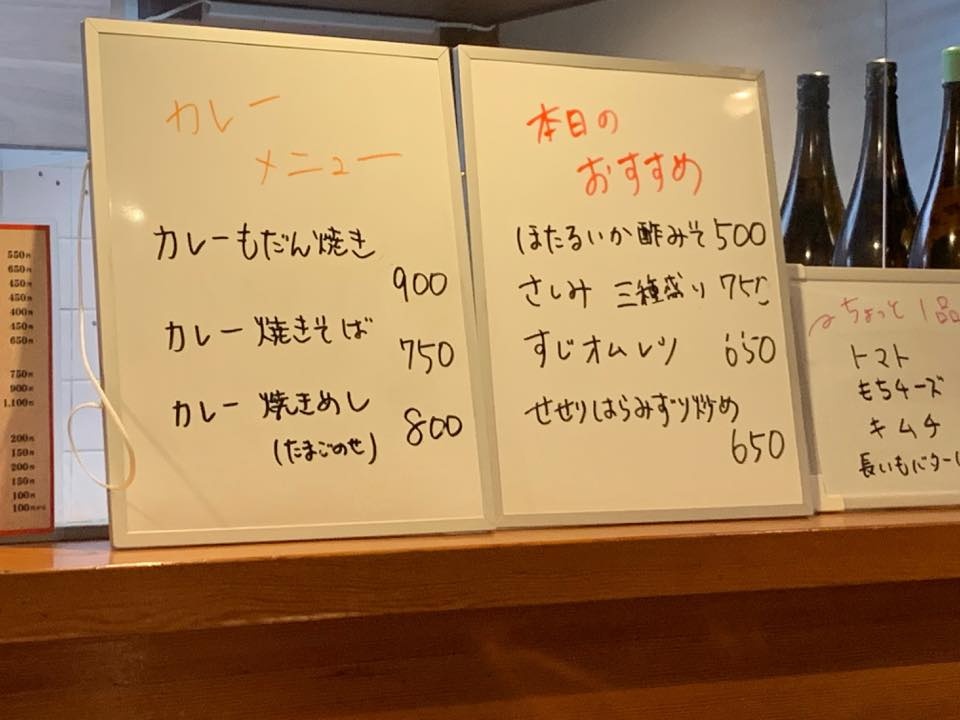 カレー
メニュー
カレーもだん焼き
900
カレー焼きそば
750
カレー 焼きめし
(たまごのせ) 800
本日の
おすすめ
ほたるいか酢みそ 500
さしみ 三種盛り 750
すじオムレツ 650
せせりはらみずり炒め
650
ちょっと1品
トマト
もちチーズ
キムチ
長いもバター
550円
650円
450円
450円
400円
450円
650円
750円
900円
1,100円
200円
150円
200円
150円
100円
100円から